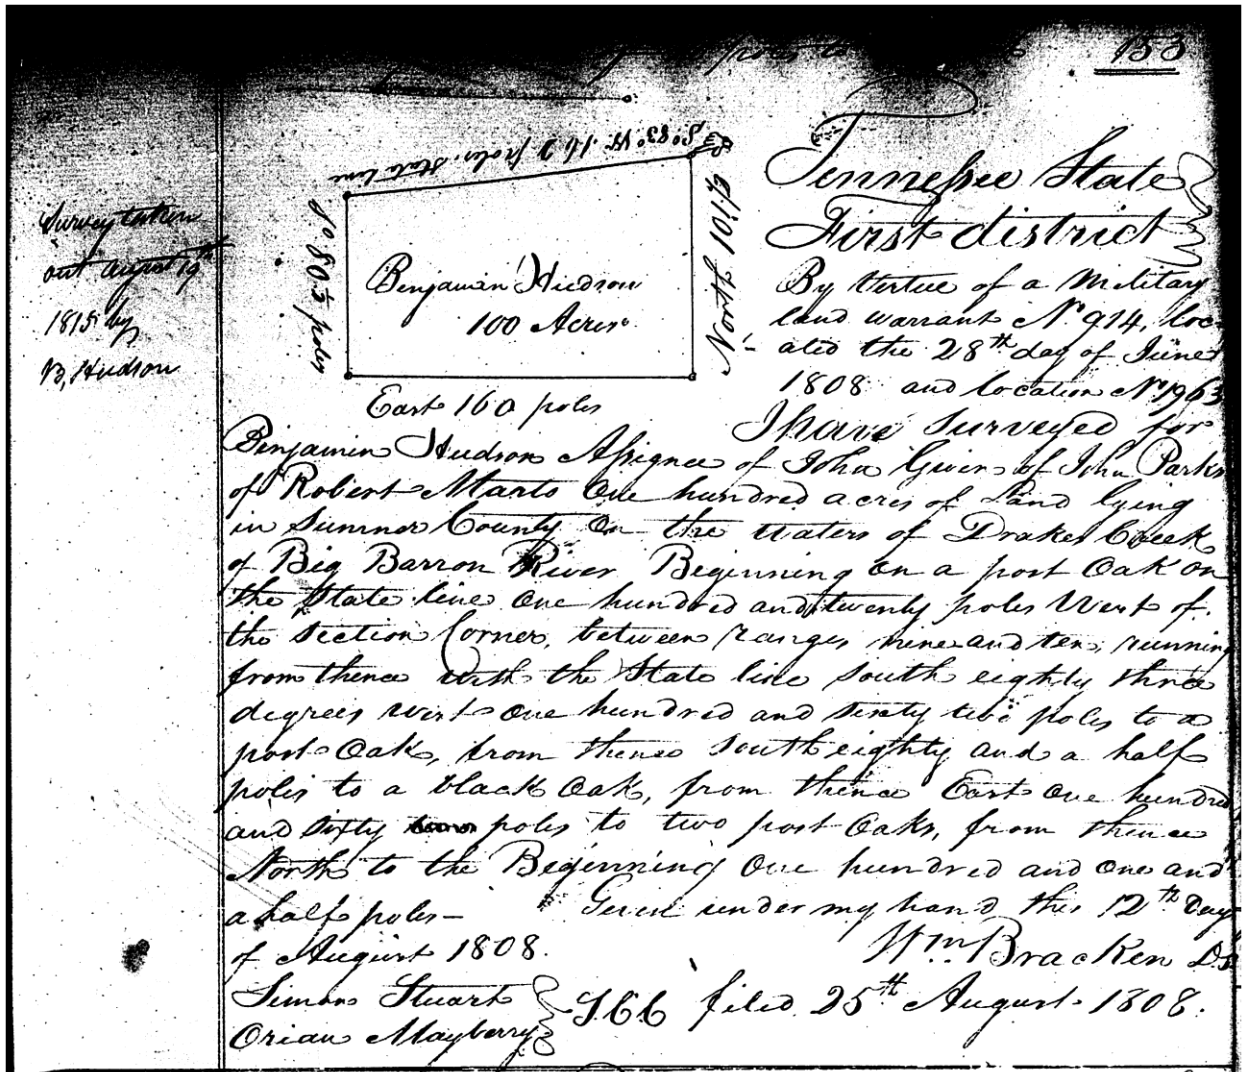 153
Tennessee State
First district
Survey taken
out august 19th
1815 by
B, Hudson
So 83° W. 162 poles. State line
So 80½ poles
North 101½
Benjamin Hudson
100 Acres
East 160 poles
By Virtue of a Military
land warrant No. 914, loc-
ated the 28th day of June
1808 and location No 1963
I have surveyed for
Benjamin Hudson Assignee of John Givens of John Parks
of Robert Marts One hundred acres of Land lying
in Sumner County On the waters of Drakes Creek
of Big Barron River Beginning on a post Oak on
the State line One hundred and twenty poles West of
the Section Corner, between ranges nine and ten, running
from thence with the State line South eighty three
degrees west One hundred and sixty two poles to a
post Oak, from thence South eighty and a half
poles to a black Oak, from thence East One hundred
and sixty poles to two post Oaks, from thence
North to the Beginning One hundred and one and
a half poles—
Given under my hand this 12th Day
of August 1808.
Wm Bracken D.S
Simon Stuart
Orian Mayberry
filed 25th August 1808.